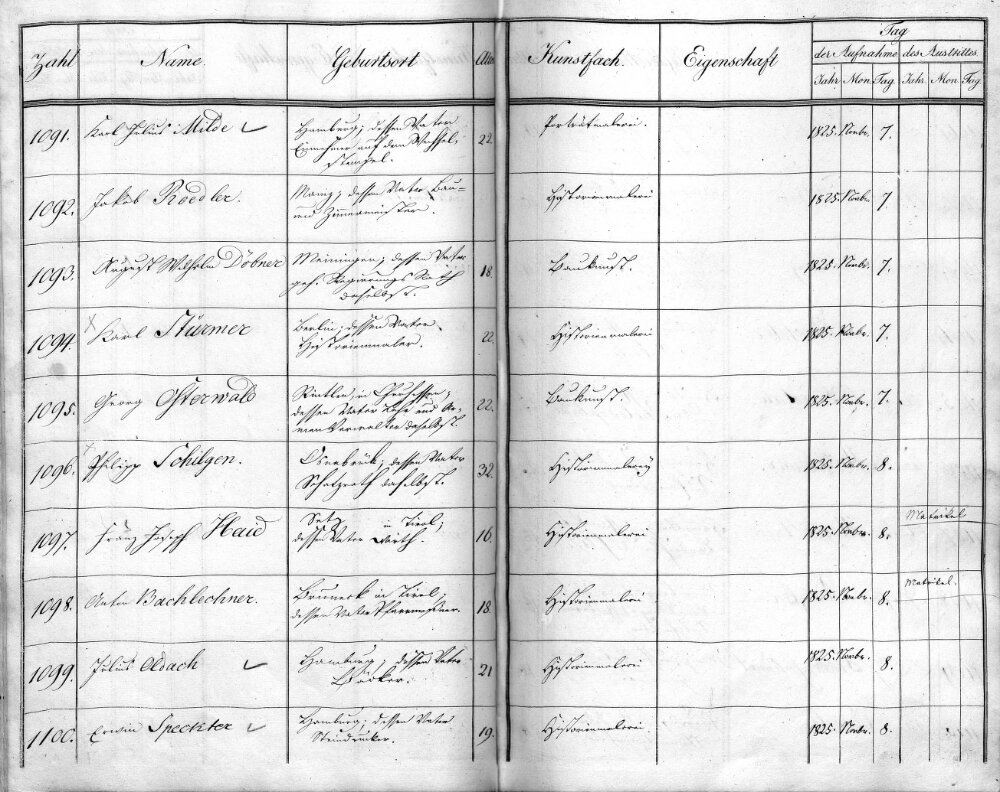 Zahl Name Geburtsort Alter Kunstfach. Eigenschaft Tag
der Aufnahme des Austrittes.
Jahr Mon. Tag. Jahr. Mon Tag
1091. Karl Julius Milde Hamburg; dessen Vater 22 Porträtmalerei. 1825. Novbr. 7.
Einnehmer auf dem
stempel.
1092. Jakob Roedler. Mainz; dessen Vater Bau-
und Zimmermeister. Historienmalerei 1825. Novbr. 7
1093. August Wilhelm Döbner Meiningen; dessen Vater 18. Baukunst. 1825. Novbr. 7.
geh. Regierungs Rath
daselbst.
1094. Karl Stürmer Berlin; dessen Vater 22. Historienmalerei 1825. Novbr. 7.
Historienmaler.
1095. Georg Osterwald Rinteln in Churhessen; 22. Baukunst. 1825. Novbr. 7.
dessen Vater und Ar-
men Verwalter daselbst.
1096. Philipp Schilgen. Osnabrück; dessen Vater 32. Historienmalerey 1825. Novbr. 8.
daselbst.
1097. Franz Joseph Haid in Tirol; 16. Historienmalerei 1825. Novbr. 8. Matrikel
dessen Vater Wirth.
1098. Anton Bachlechner. Brunneck in Tirol; 18. Historienmalerei 1825. Novbr. 8. Matrikel.
dessen Vater
1099. Julius Oldach Hamburg; dessen Vater 21 Historienmalerei 1825. Novbr. 8.
Bäcker.
1100. Erwin Speckter Hamburg; dessen Vater 19. Historienmalerei. 1825. Novbr. 8.
Steindrucker.